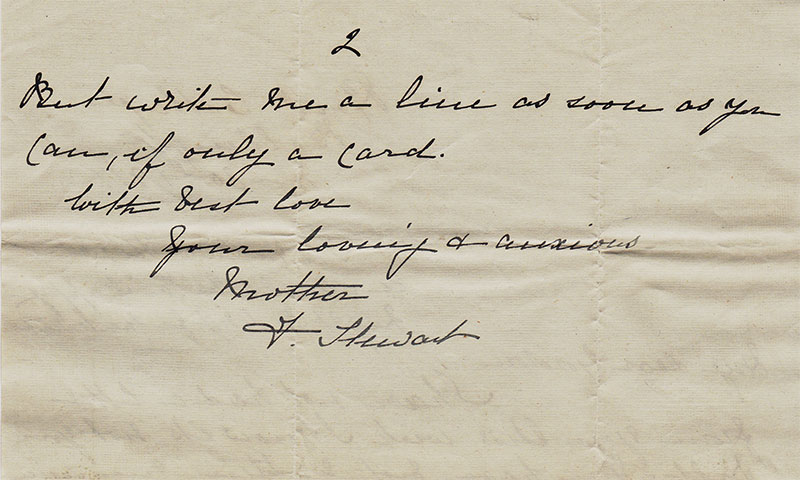 2
But write me a line as soon as you
can, if only a card.
With best love
Your loving & anxious
Mother
F. Stewart